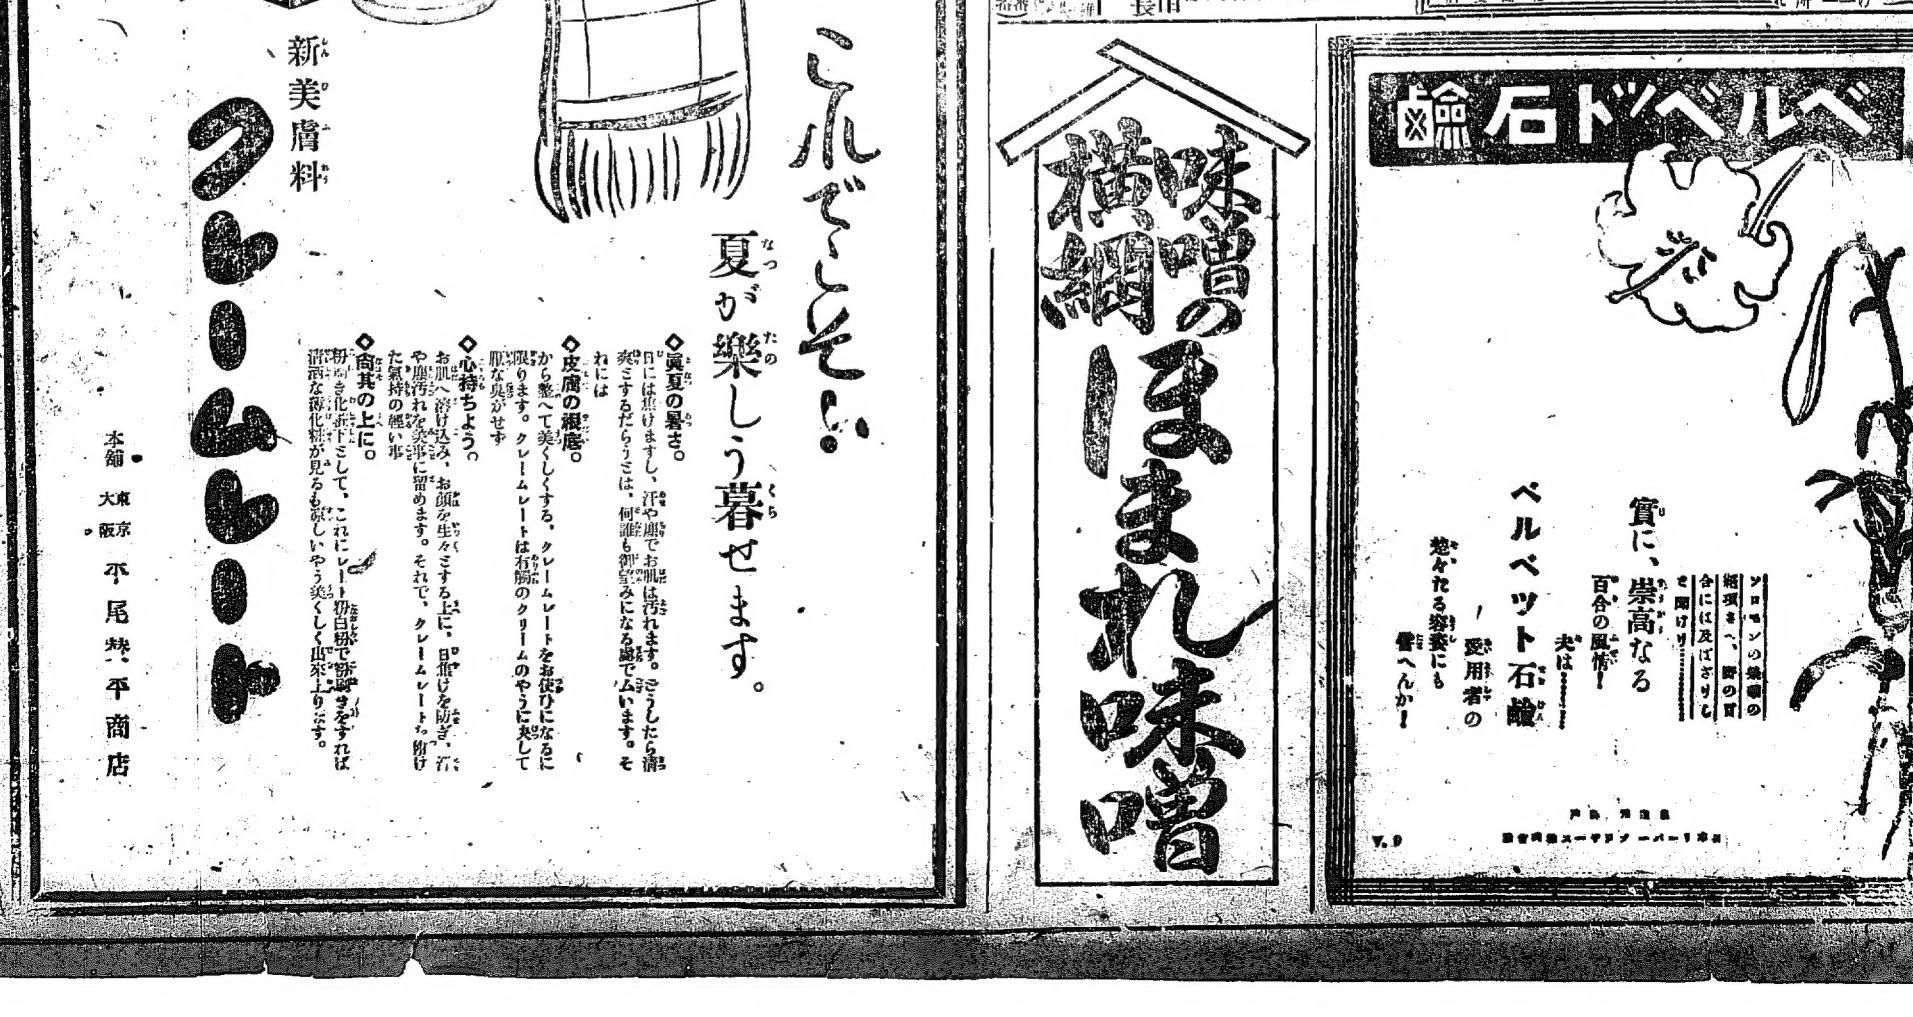 ベルベット石鹼
ソロモンの榮華の
極項さへ、野の百
合には及ばざりし
と聞けり
實に、崇高なる
百合の風情！
夫は
ベルベット石鹼
愛用者の
楚々たる容姿にも
譬へんか！
V.9
味噌の
横綱
ほまれ味噌
これでこそ！
夏が樂しう暮せます。
◇眞夏の暑さ。
日には焦けますし、汗や塵でお肌は汚れます。どうしたら清
爽とするだらうとは、何誰も御望みになる處でムいます。そ
れには
◇皮膚の根底。
から整へて美くしくする。クレームレートをお使ひになるに
限ります。クレームレートは有觸のクリームのやうに決して
厭な臭がせず
◇心持ちよう。
お肌へ溶け込み、お顔を生々とする上に、日焦けを防ぎ、汗
や塵汚れを美事に留めます。それで、クレームレートを附け
た氣持の輕い事
◇尙其の上に。
粉刷き化粧下として、これにレート粉白粉で粉刷きをすれば
清洒な薄化粧が見るも凉しいやう美くしく出來上ります。
新美膚料
クレームレート
本舗
東京
大阪
平尾賛平商店